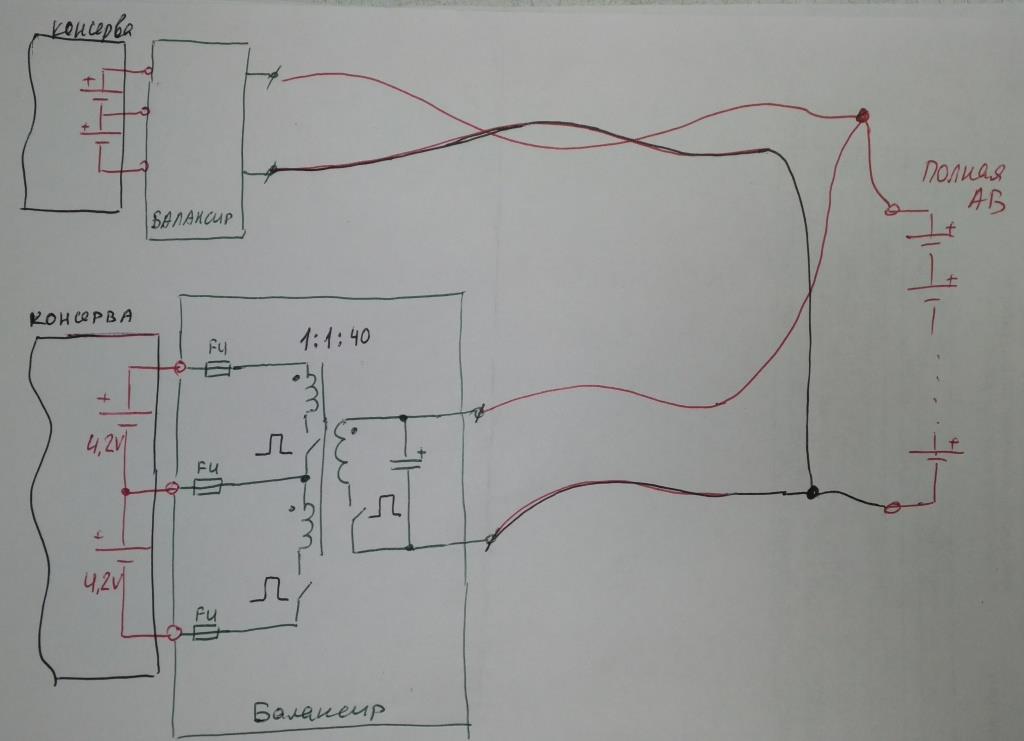 консерва
+
+
БАЛАНСИР
ПОЛНАЯ
АВ
+
+
+
КОНСЕРВА
FU
1:1:40
+
4,2V
FU
+
+
4,2V
FU
Балансир